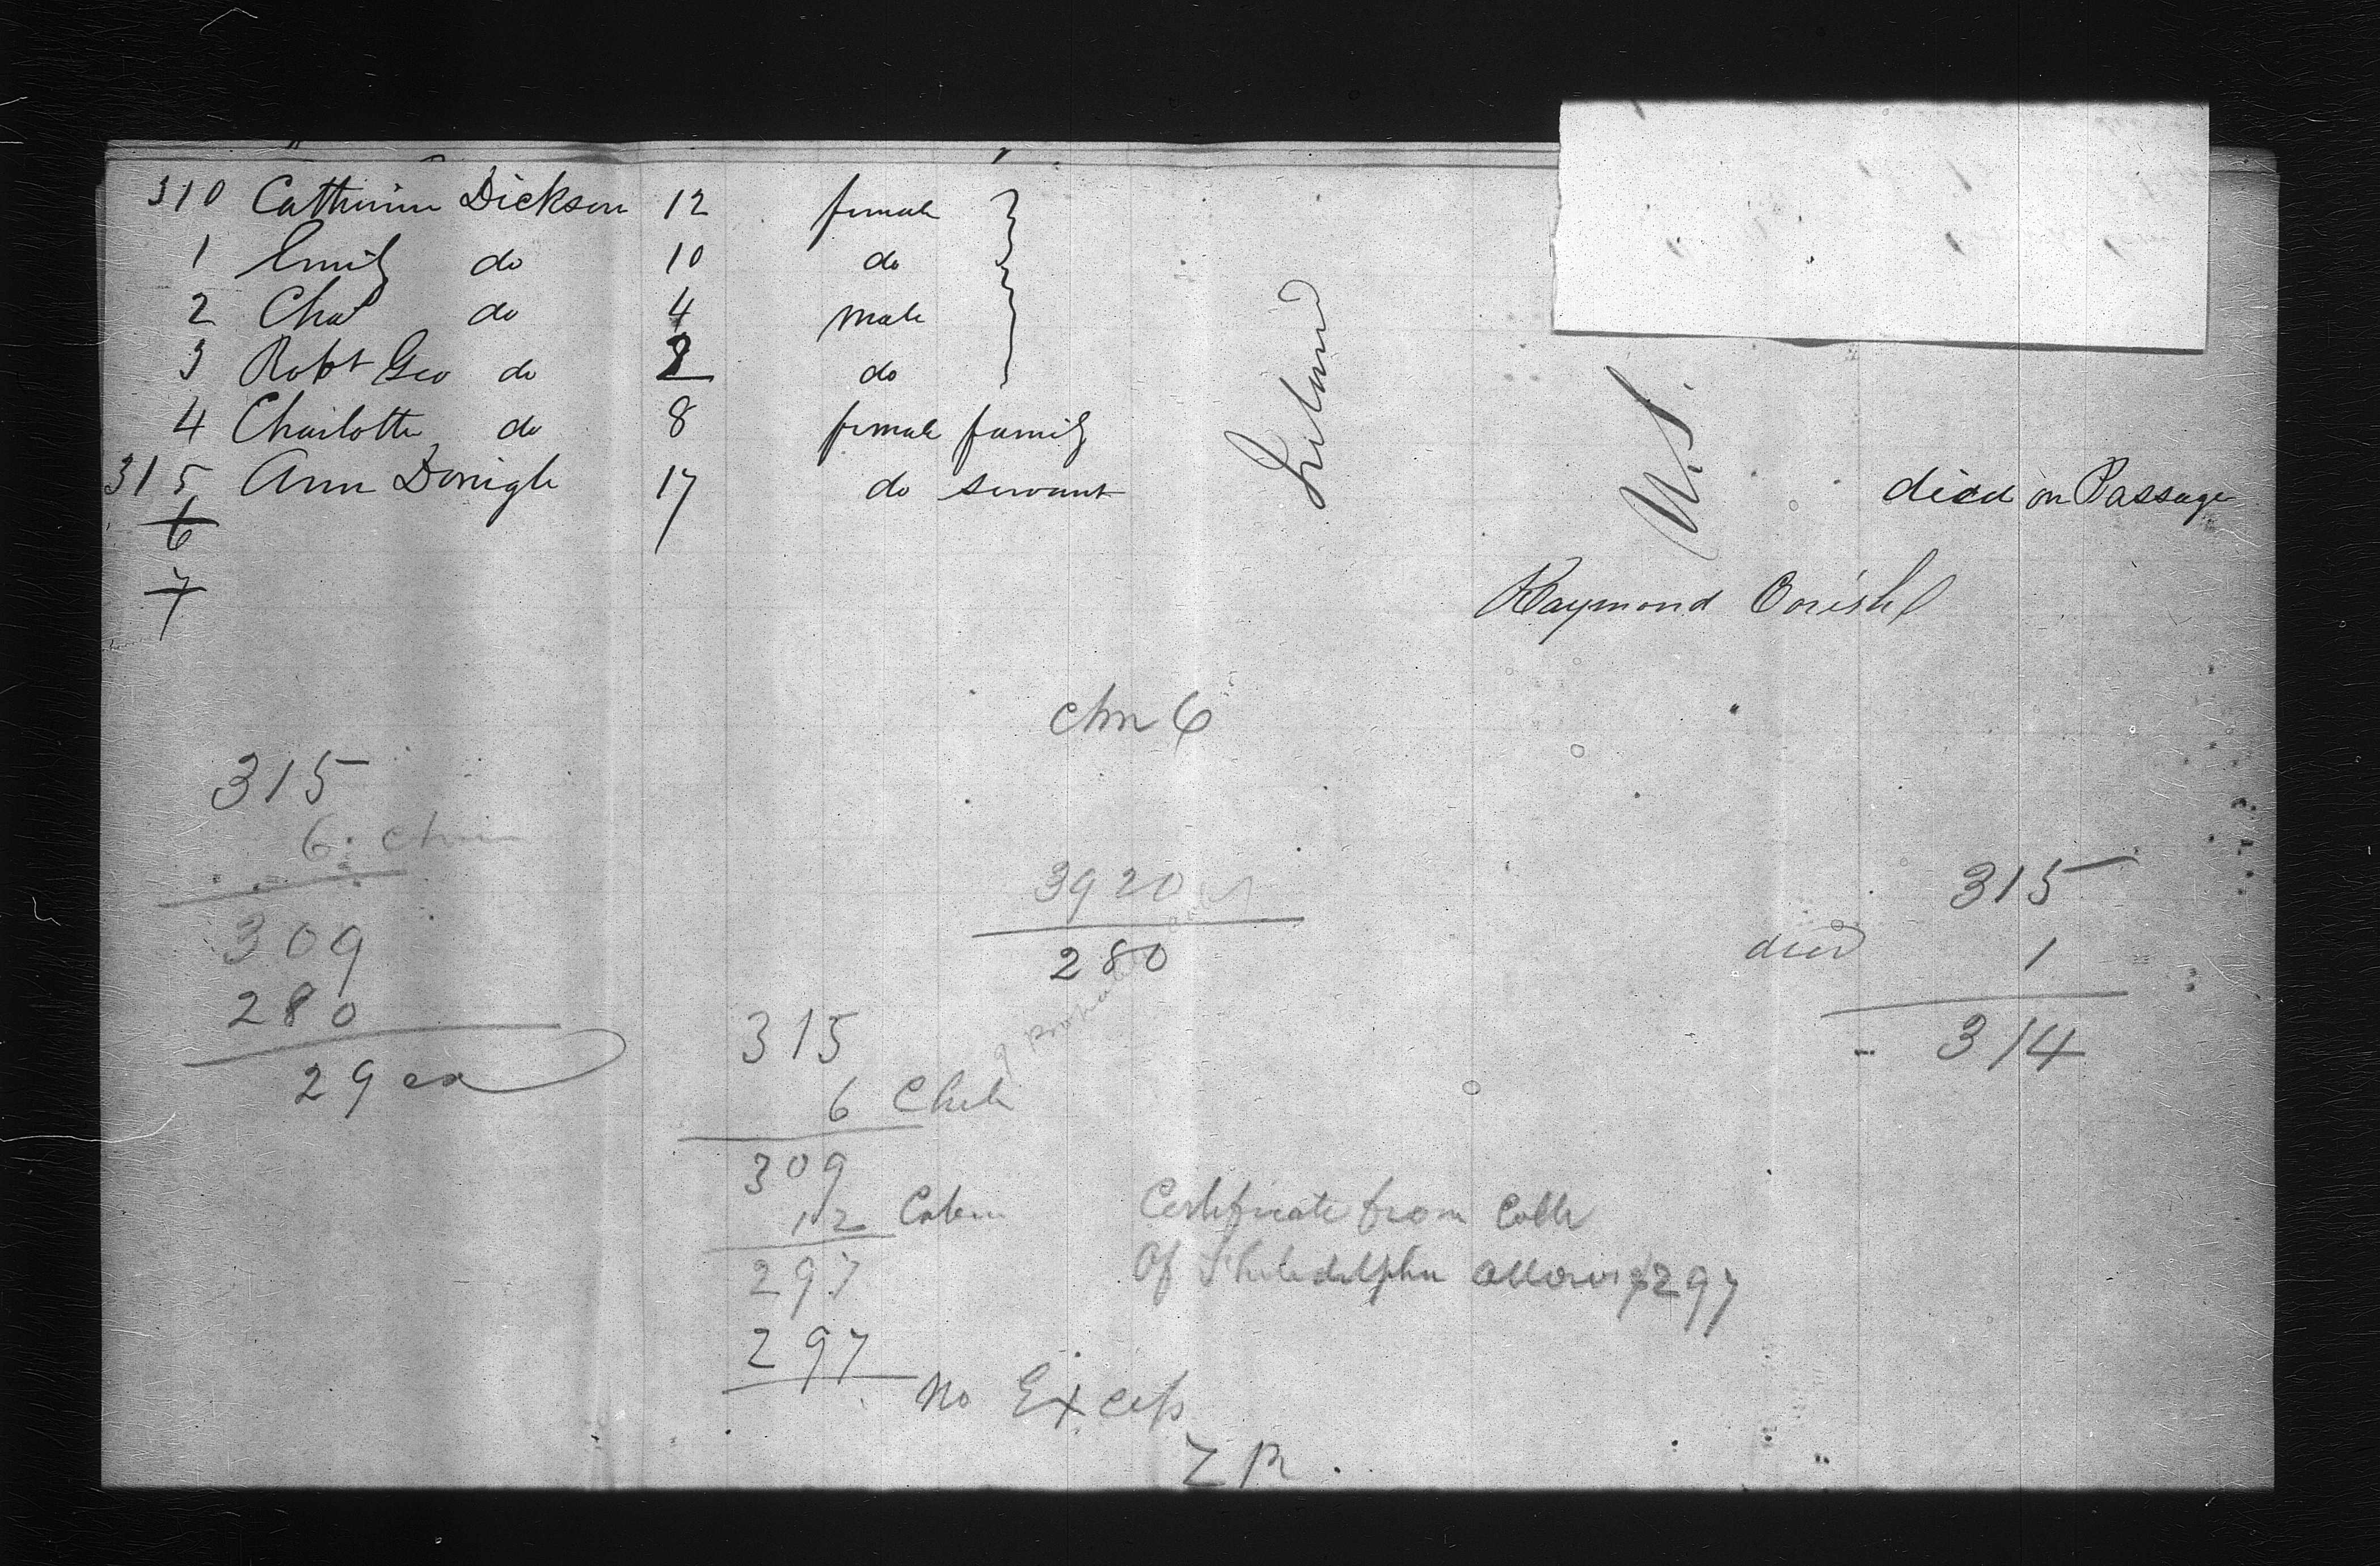 310 Catherine Dickson 12 female
1 Emily do 10 do
2 Chas do 4 male
3 Robt Geo do 2 do
4 Charlotte do 8 female family
315 Ann 17 do servant died on Passage
6
7
Ireland
U.S.
Raymond
chn 6
315
6 chn
309
280
29 ex
3920
280
315
6 Chil
309
12 Cabin
297
297
no Excess
Certificate from Coll
Of Philadelphia allowing 297
315
died 1
314